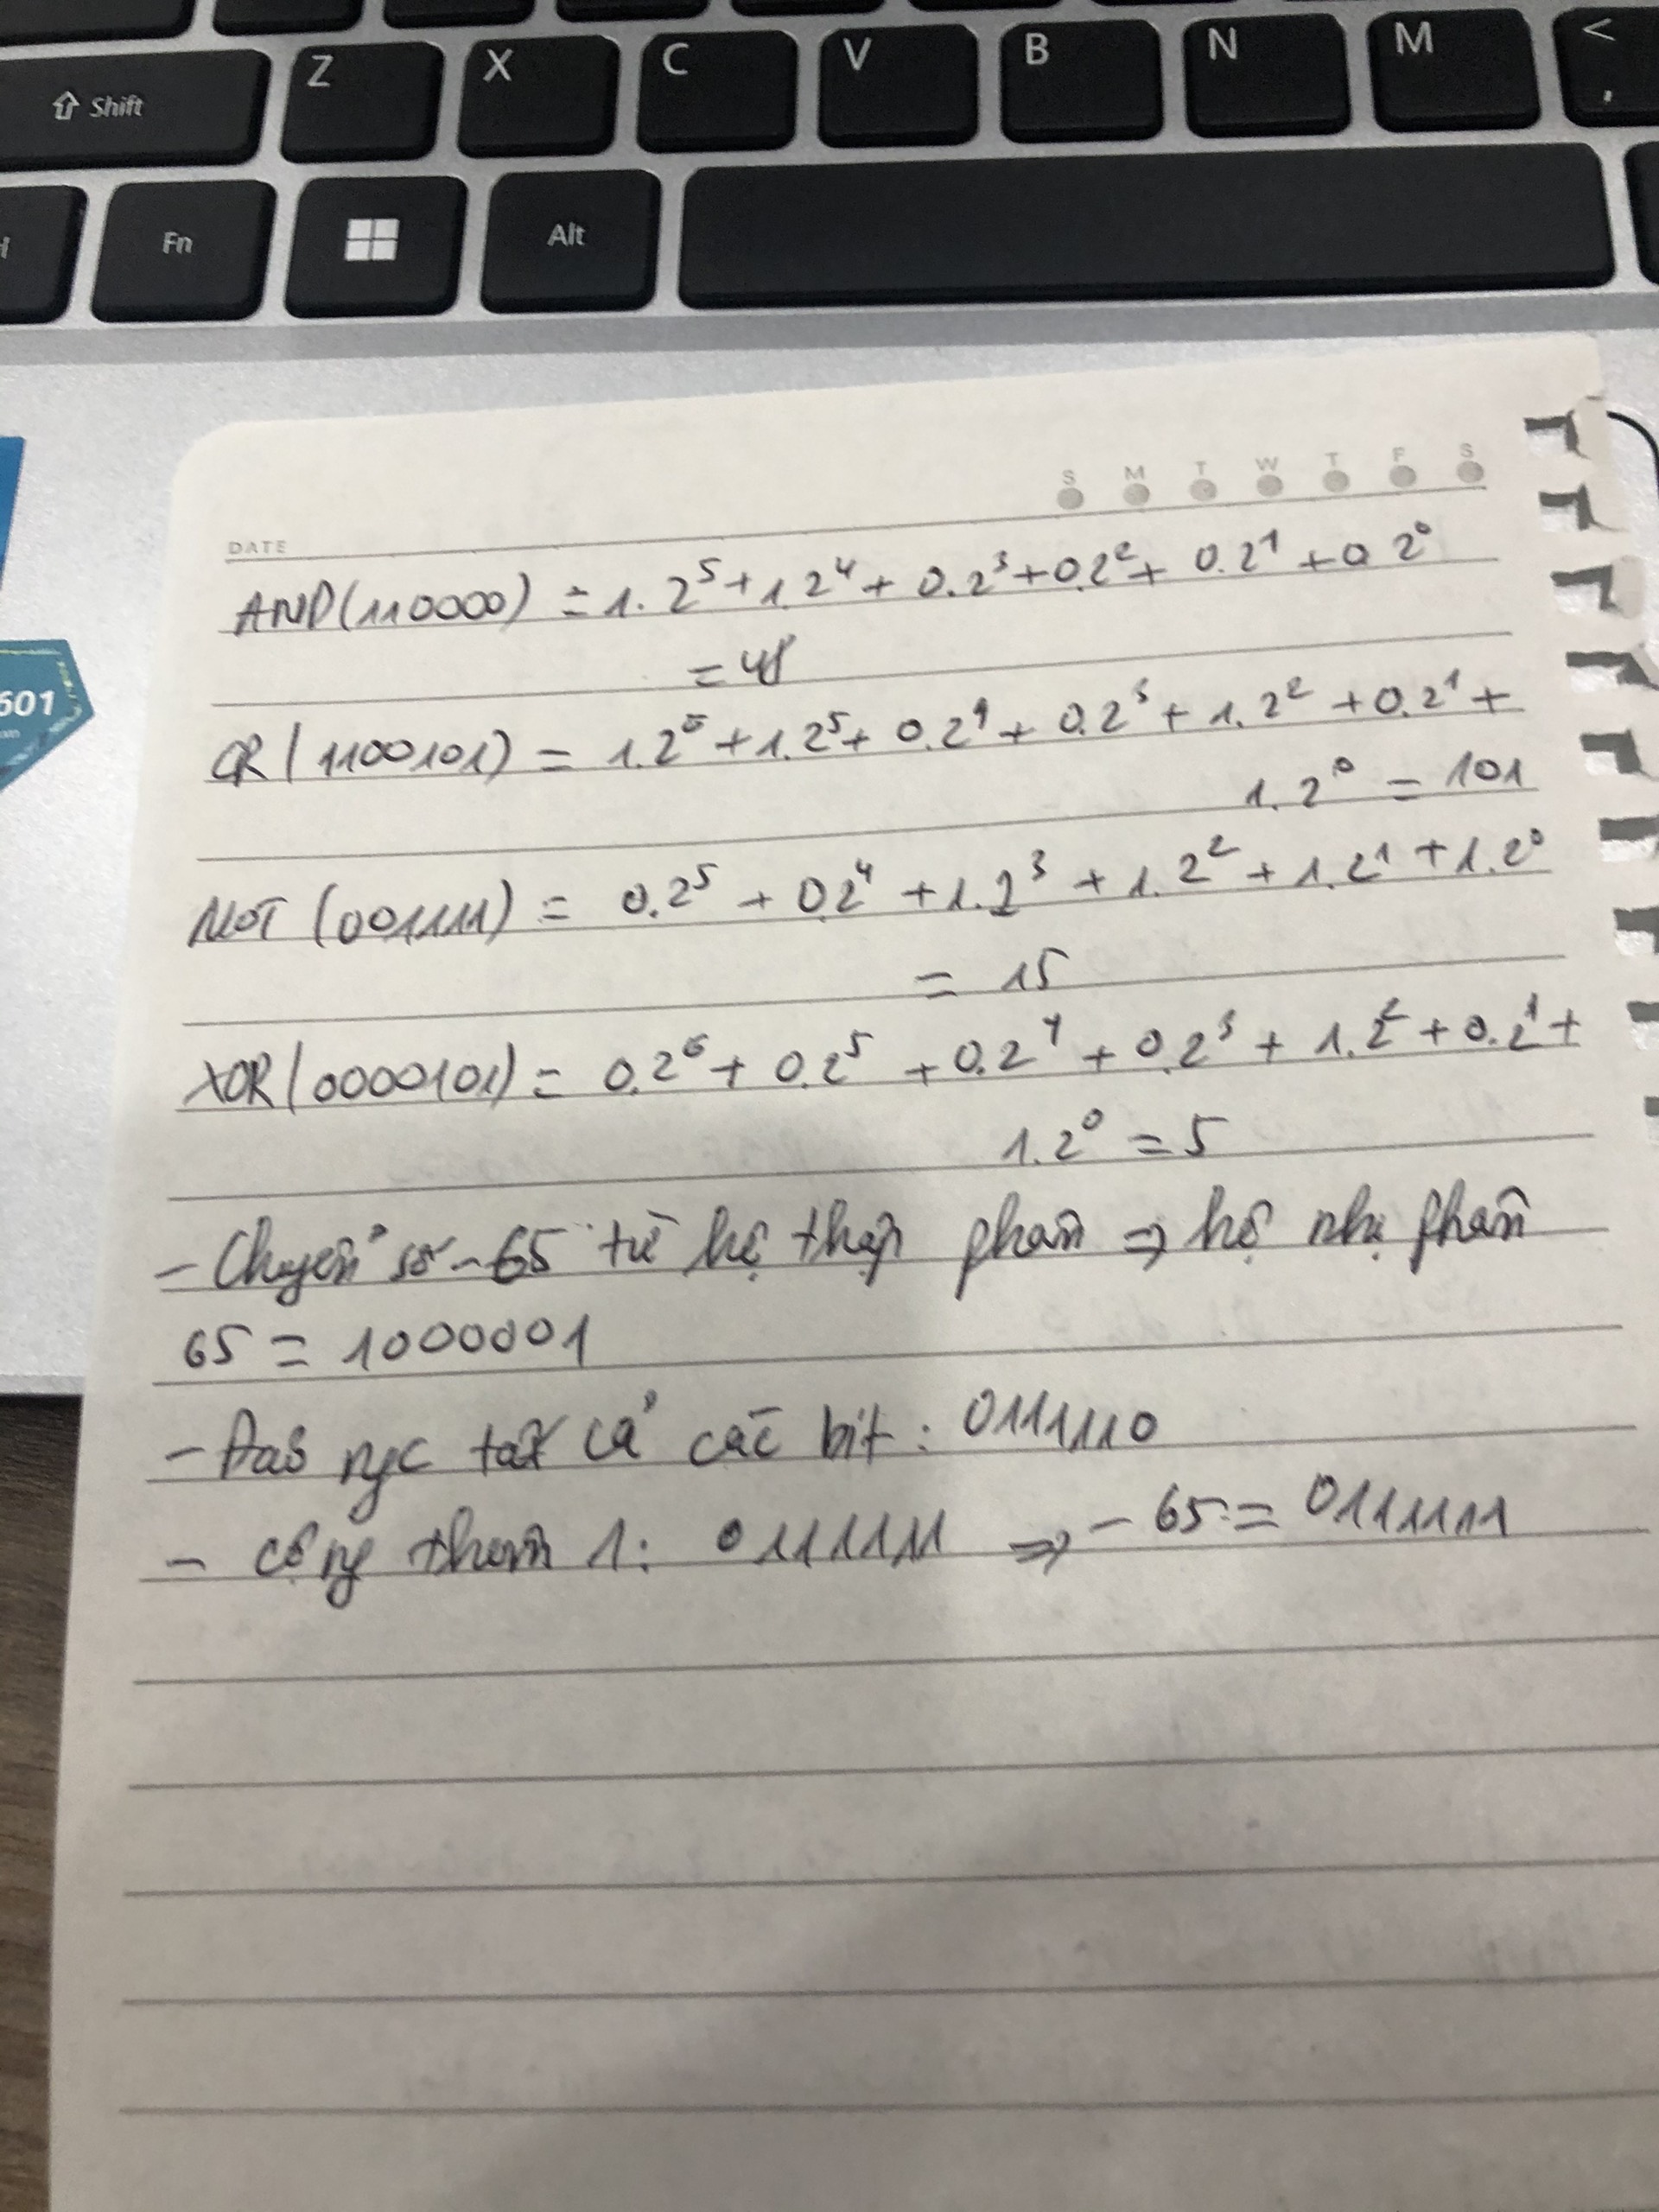 Z X C V B N M <
Shift ,
Fn Alt
601
S M T W T F S
DATE
AND(110000) = 1.2⁵ + 1.2⁴ + 0.2³ + 0.2² + 0.2¹ + 0.2⁰
= 48
OR(1100101) = 1.2⁶ + 1.2⁵ + 0.2⁴ + 0.2³ + 1.2² + 0.2¹ +
1.2⁰ = 101
NOT (001111) = 0.2⁵ + 0.2⁴ + 1.2³ + 1.2² + 1.2¹ + 1.2⁰
= 15
XOR(0000101) = 0.2⁶ + 0.2⁵ + 0.2⁴ + 0.2³ + 1.2² + 0.2¹ +
1.2⁰ = 5
- Chuyển số -65 từ hệ thập phân => hệ nhị phân
65 = 1000001
- Đảo ngc tất cả các bit: 0111110
- cộng thêm 1: 0111111 => -65 = 0111111